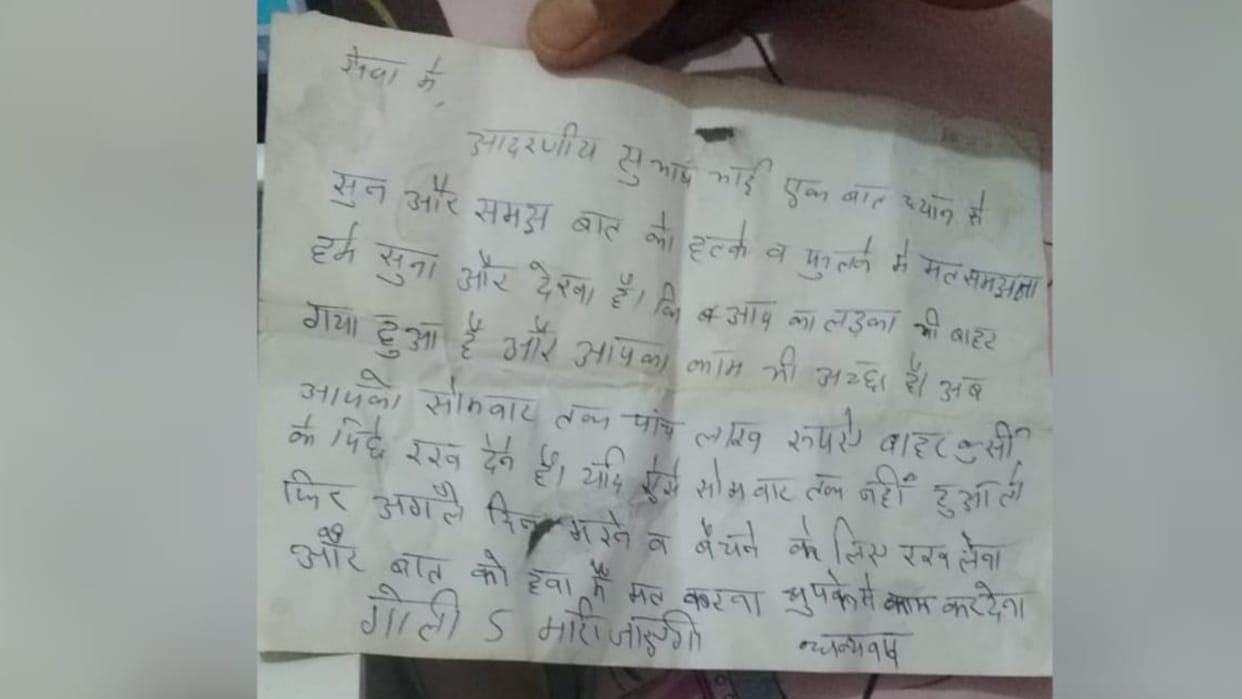 सेवा में,
आदरणीय सुभाष भाई एक बात ध्यान से
सुन और समझ बात को हल्के व फुलके मे मत समझना
हमे सुना और देखा है। कि आप का लड़का भी बाहर
गया हुआ है और आपका काम भी अच्छा है। अब
आपको सोमवार तक पांच लाख रूपए बाहर कुर्सी
के पिछे रख देने है। यदि ऐसे सोमवार तक नहीं हुआ तो
फिर अगले दिन मरने व बैचने के लिए रख लेना
और बात को हवा मैं मत करना चुपके से काम कर देना
गोली 5 मारी जाएगी धन्यवाद